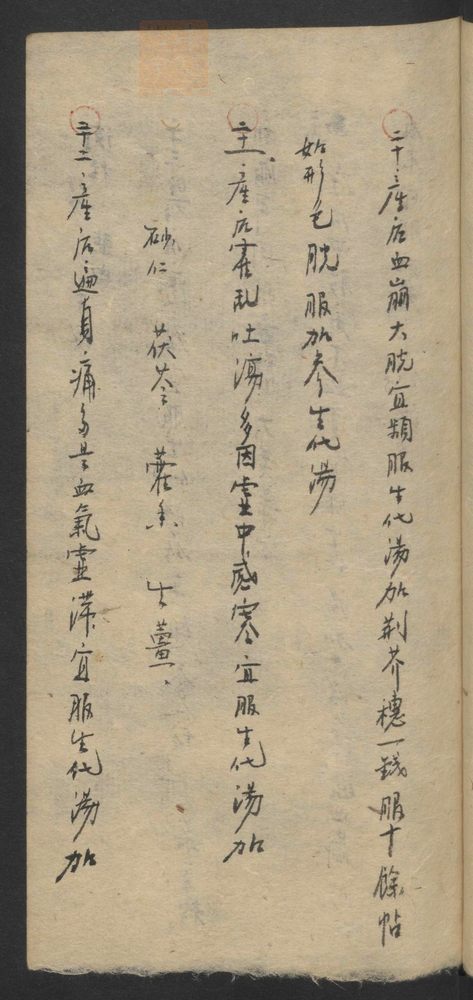 二十產后血崩大脫宜頻服生化湯加荆芥穗一錢服十餘帖
如形色脫服加參生化湯
二十一產后霍乱吐瀉多因虛中感寒宜服生化湯加
砂仁 茯苓 藿香 生薑
二十二產后遍身痛多是血氣虛滞宜服生化湯加